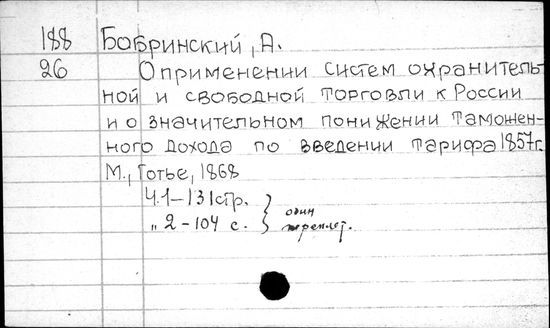 188 Бобринский, А.
26 О применении систем охранитель-
ной и свободной торговли к России
и о значительном понижении таможен-
ного дохода по введении тарифа 1857г.
М., Готье, 1868
Ч.1–131стр.
„ 2–104 с.
один
переплет.